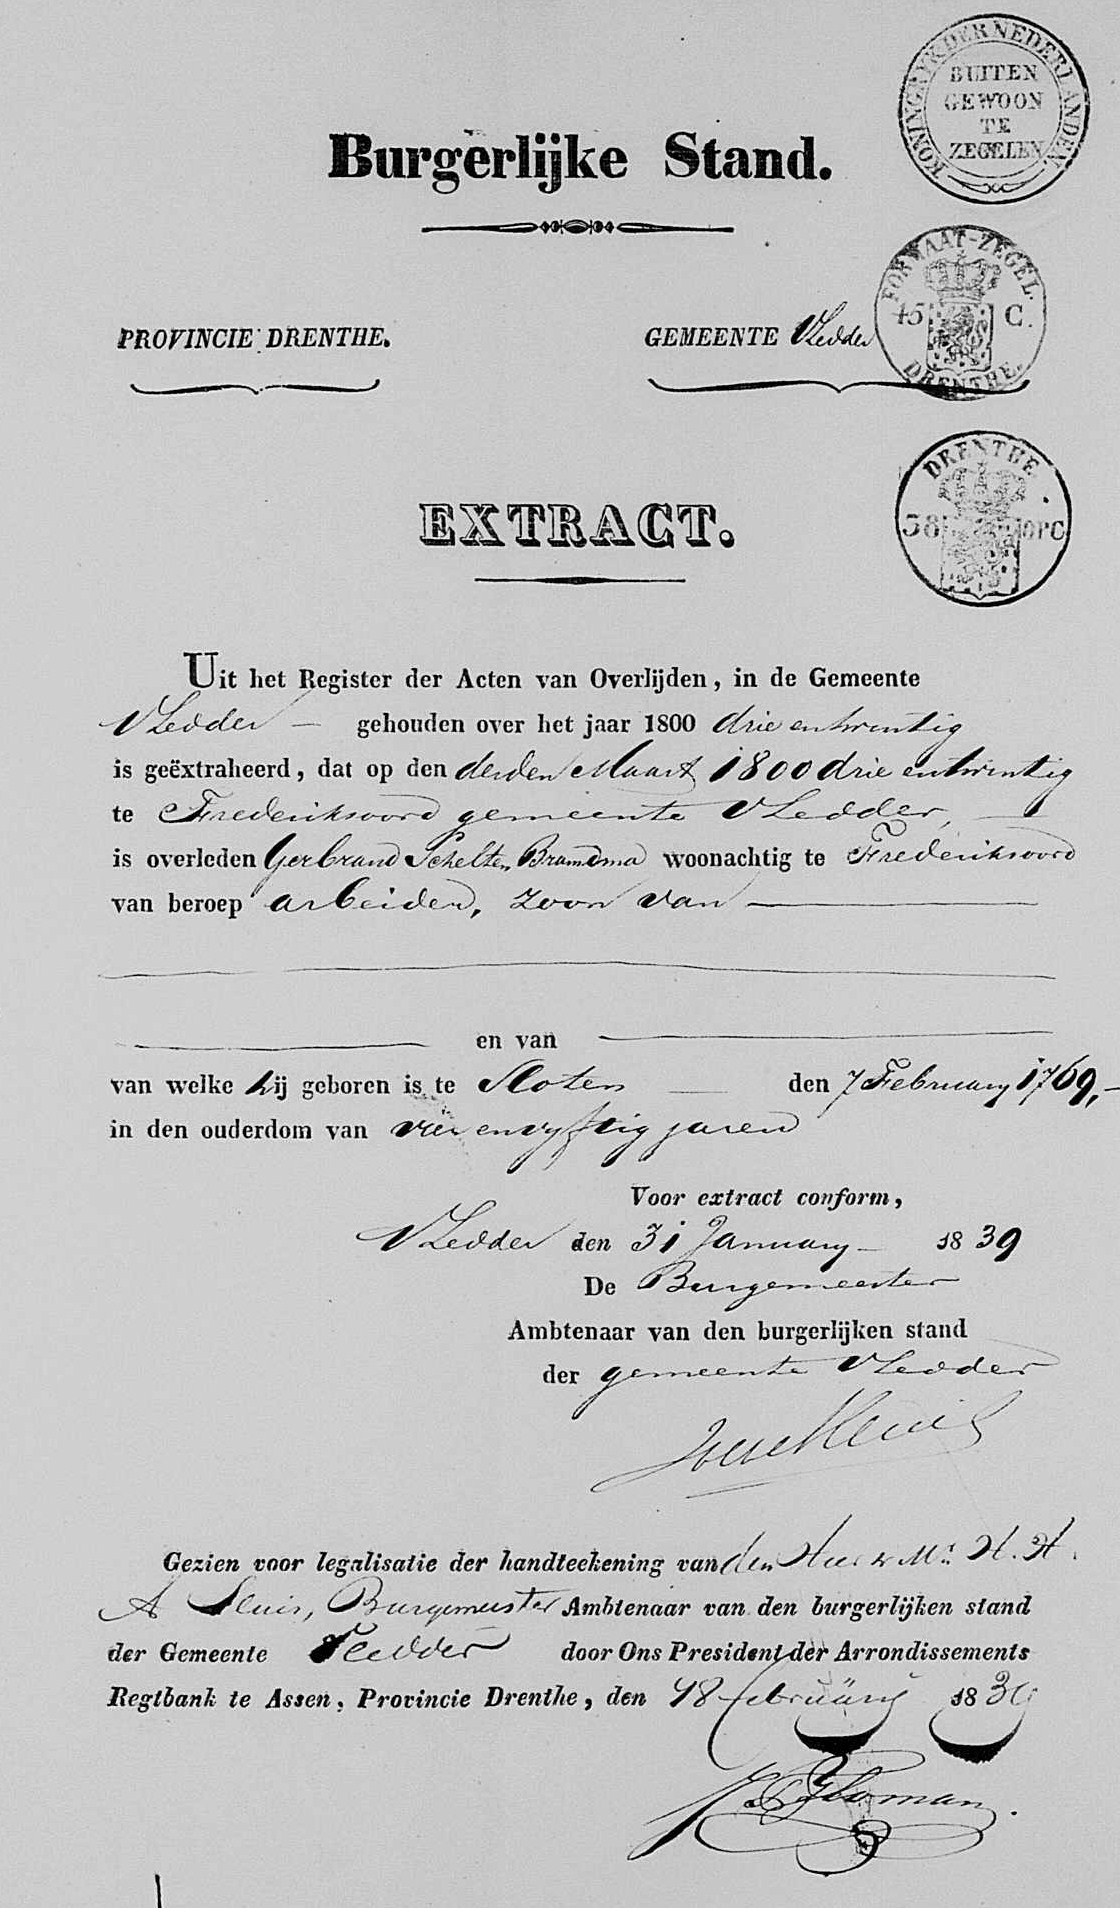 KONINGRYK DER NEDERLANDEN
BUITEN
GEWOON
TE
ZEGELEN
Burgerlijke Stand.
FORMAAT-ZEGEL.
45 C.
DRENTHE.
PROVINCIE DRENTHE.
GEMEENTE Vledder
DRENTHE
38 OPC
EXTRACT.
Uit het Register der Acten van Overlijden, in de Gemeente
Vledder gehouden over het jaar 1800 drie entwintig
is geëxtraheerd, dat op den derden Maart 1800 drie entwintig
te Frederiksoord gemeente Vledder,
is overleden Gerbrand Scheltes Brandsma woonachtig te Frederiksoord
van beroep arbeider, zoon van
en van
van welke hij geboren is te Sloten den 7 February 1769,
in den ouderdom van vier en vyftig jaren
Voor extract conform,
Vledder den 31 January 1839
De Burgemeester
Ambtenaar van den burgerlijken stand
der gemeente Vledder
Gezien voor legalisatie der handteekening van den Heer Mr. H. H.
A Sluis, Burgemeester Ambtenaar van den burgerlijken stand
der Gemeente Vledder door Ons President der Arrondissements
Regtbank te Assen, Provincie Drenthe, den 18 february 1839